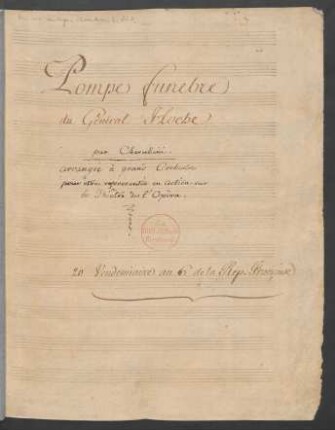 Pompe funebre
du Général Hoche
par Cherubini.
arrangée à grand Orchestre
pour etre representée en action sur
le Théatre de l'Opera.
20 Vendemiaire an 6 de la Rep. Française